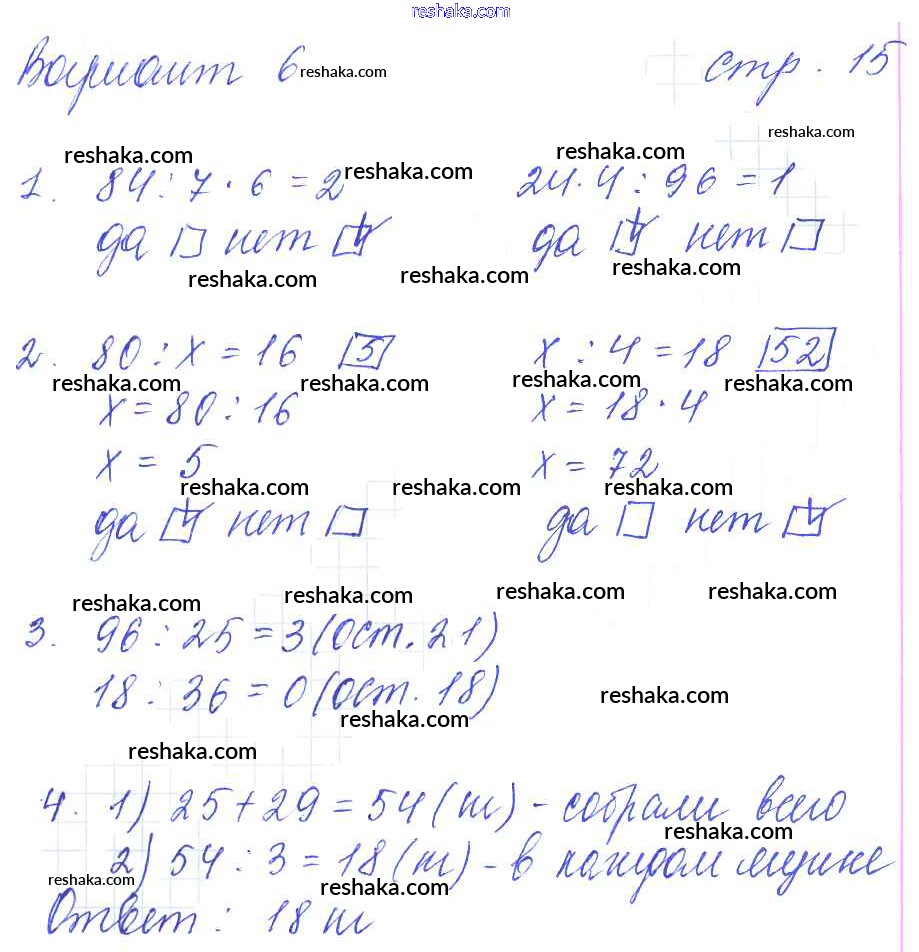 reshaka.com
Вариант 6 reshaka.com стр. 15
reshaka.com
reshaka.com reshaka.com reshaka.com
1. 84 : 7 · 6 = 2 24 · 4 : 96 = 1
да нет да нет
reshaka.com reshaka.com reshaka.com
2. 80 : x = 16 5 x : 4 = 18 52
reshaka.com reshaka.com reshaka.com reshaka.com
x = 80 : 16 x = 18 · 4
x = 5 x = 72
reshaka.com reshaka.com reshaka.com
да нет да нет
reshaka.com reshaka.com reshaka.com reshaka.com
3. 96 : 25 = 3 (ост. 21)
18 : 36 = 0 (ост. 18)
reshaka.com
reshaka.com
reshaka.com
4. 1) 25 + 29 = 54 (ш) - собрали всего
reshaka.com
2) 54 : 3 = 18 (ш) - в каждом ящике
reshaka.com reshaka.com
Ответ : 18 ш